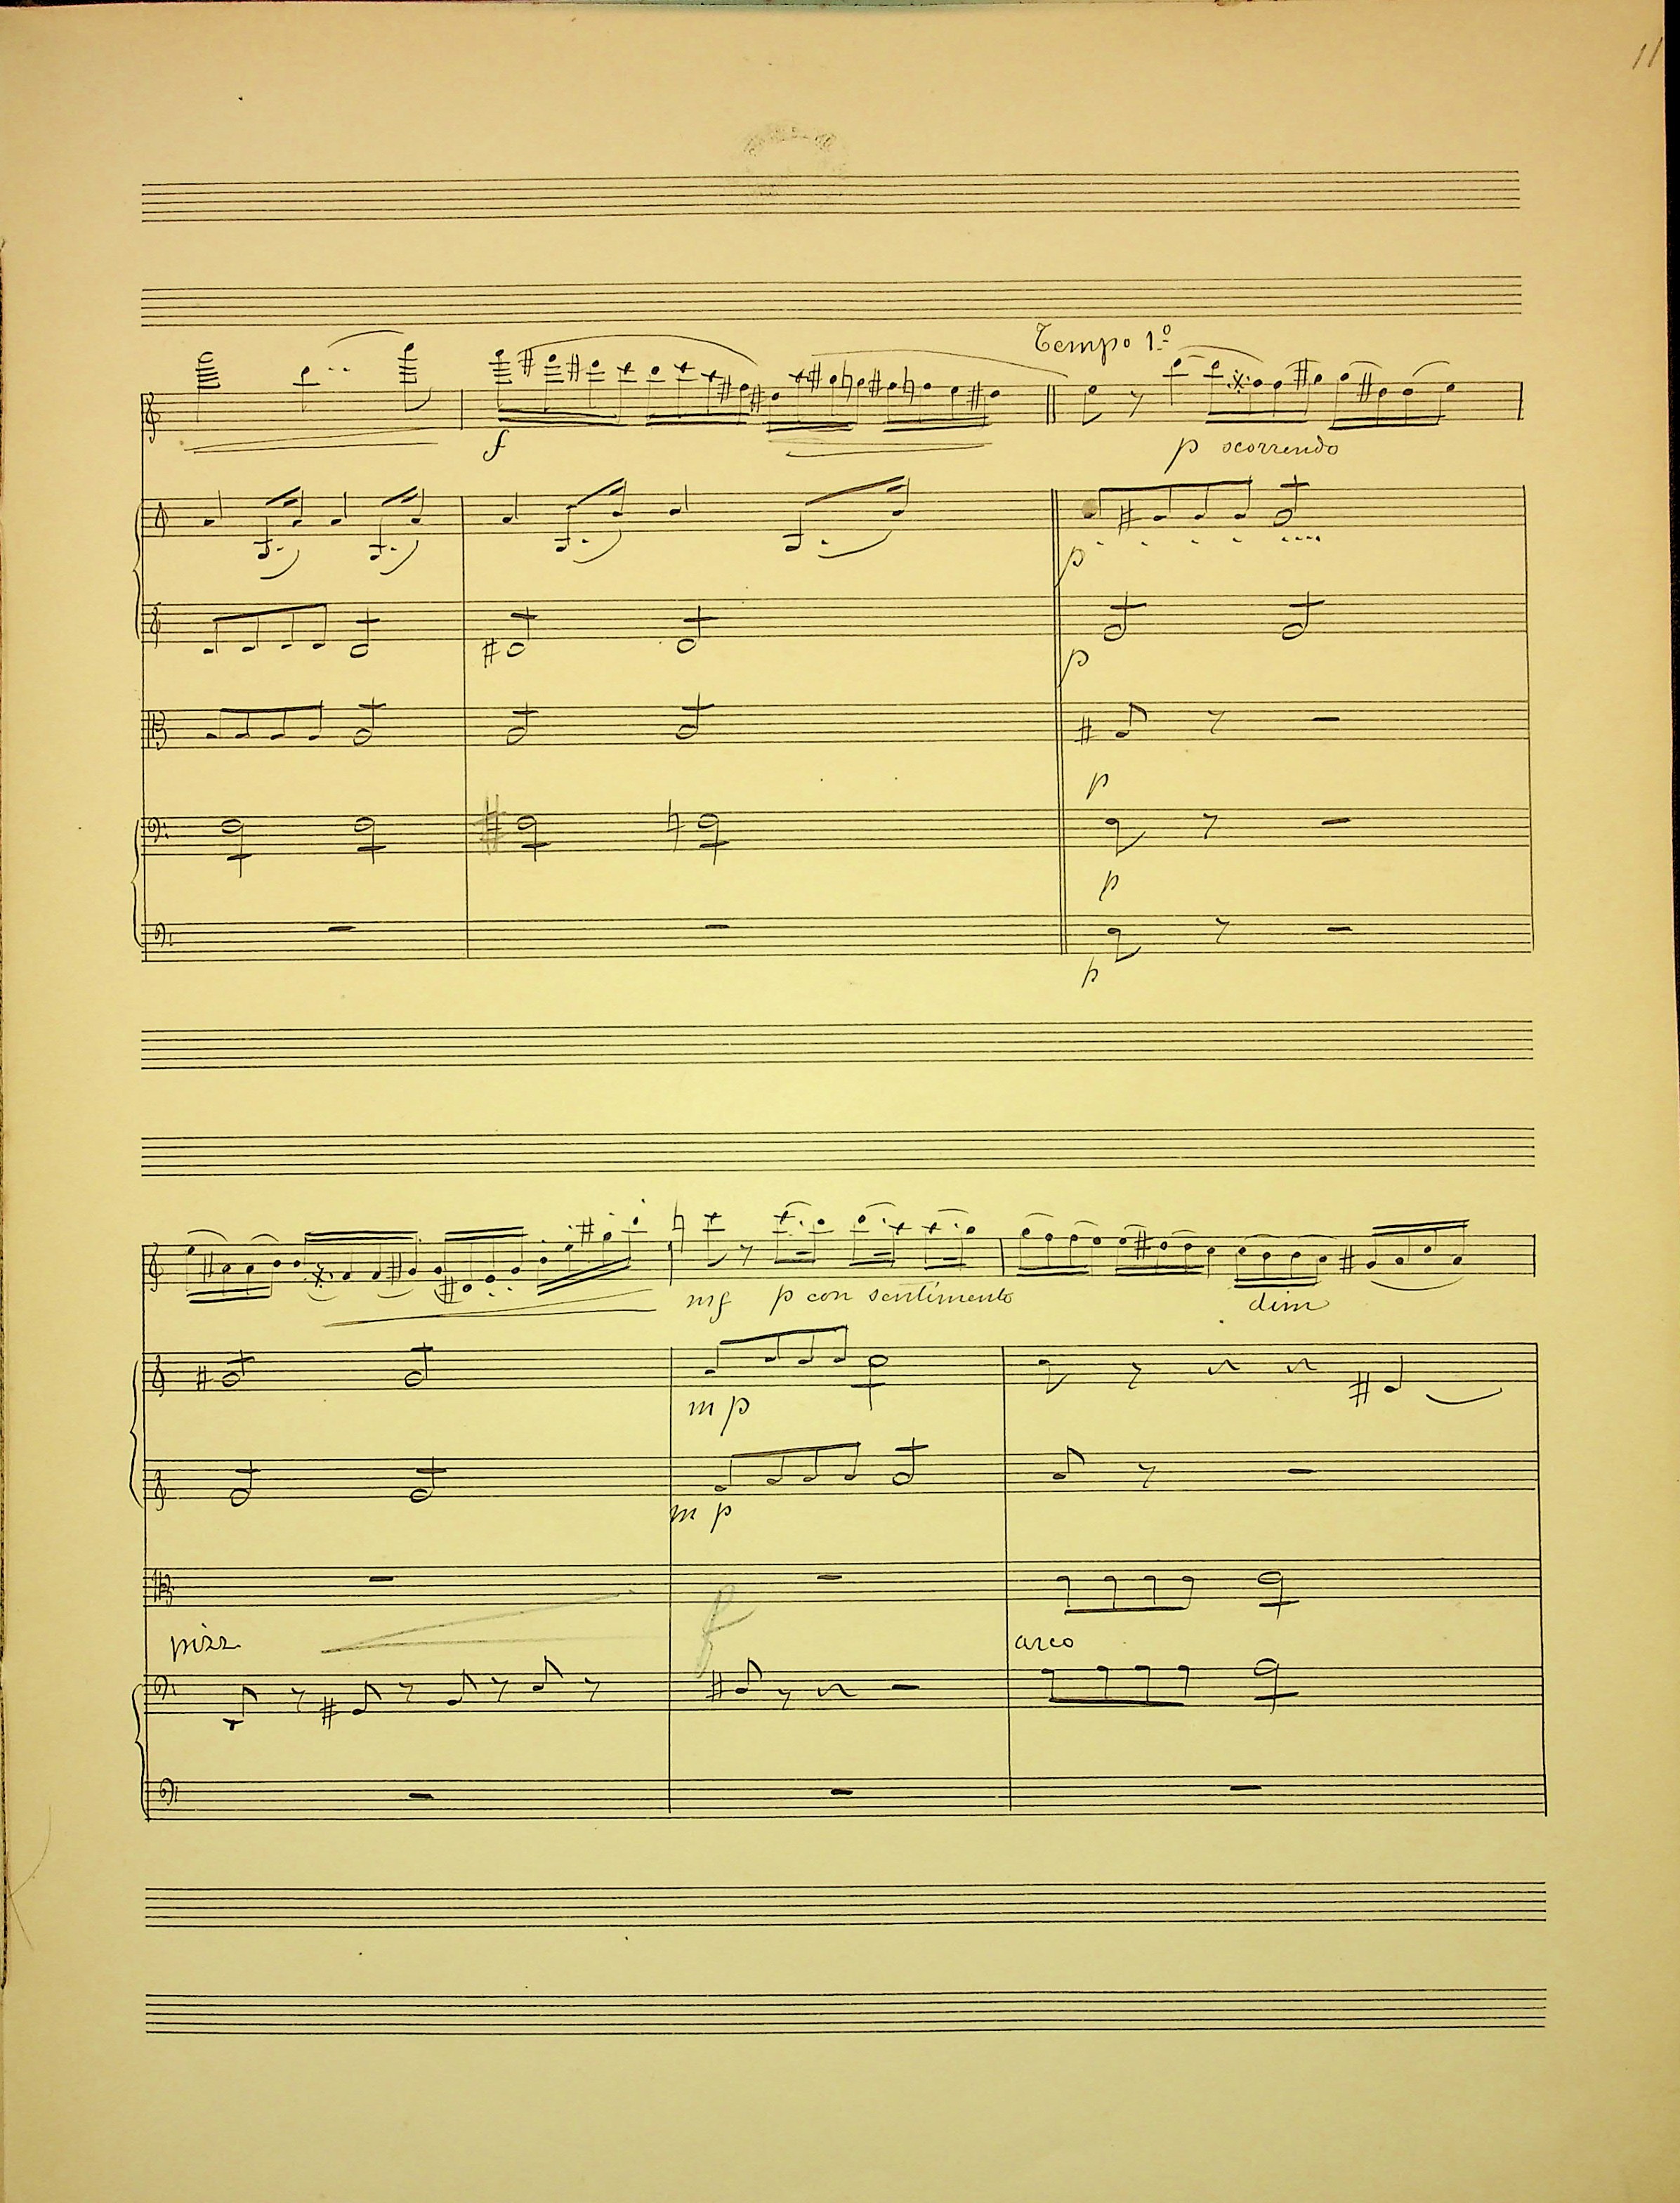 11
Tempo 1º
f
p scorrendo
p
p
p
p
p
mf p con sentimento
dim
m p
m p
f
pizz
arco